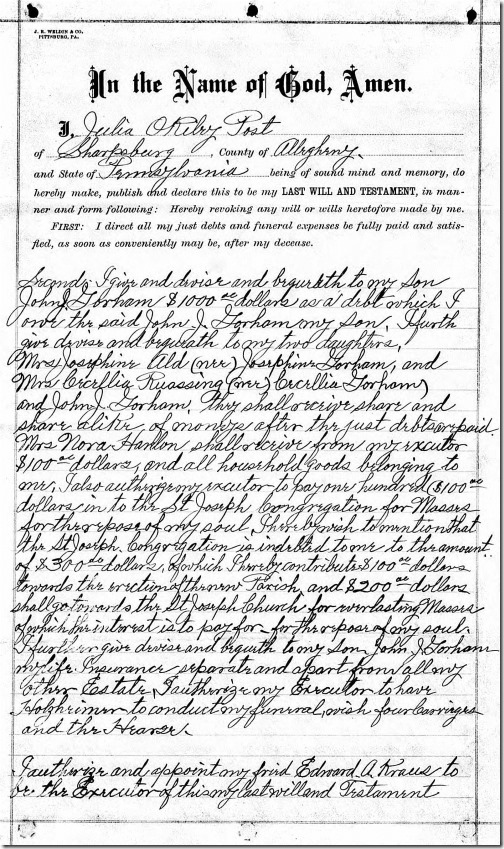 J. R. WELDIN & CO.
PITTSBURG, PA.
In the Name of God, Amen.
I, Julia OKiley Post
of Sharpsburg, County of Allegheny,
and State of Pennsylvania being of sound mind and memory, do
hereby make, publish and declare this to be my LAST WILL AND TESTAMENT, in man-
ner and form following: Hereby revoking any will or wills heretofore made by me.
FIRST: I direct all my just debts and funeral expenses be fully paid and satis-
fied, as soon as conveniently may be, after my decease.
Second: I give and devise and bequeath to my Son
John J. Gorham $1000 00 dollars as a debt which I
owe the said John J. Gorham my son. I furth
give devise and bequeath to my two daughters,
Mrs Josephine Ald (nee) Josephine Gorham, and
Mrs Cecellia Ruassing (nee) Cecellia Gorham)
and John J. Gorham. they shall receive share and
share alike, of moneys after the just debts are paid.
Mrs Nora Hanlon, shall receive from my excutor
$100 00 dollars, and all household goods belonging to
me, I also autherize my excutor to pay one hundred $100 00
dollars in to the St Joseph Congregation for Masses
for the repose of my soul, I hereby wish to mention that
the St Joseph Congregation is indebted to me to the amount
of $300 00 dollars, of which I hereby contribute $100 00 dollars
towards the erection of the new Parish, and $200 00 dollars
shall go towards the St Joseph Church for everlasting Masses
of which the interest is to pay for - for the repose of my soul.
I further give devise and bequeth to my Son John J. Gorham
my life Insurance seperate and apart from all my
other Estate, I autherize my Executor to have
Holzheimer to conduct my funeral, wish four Carriges
and the Hearse.
I autherize and appoint my fried Edward A. Kraus to
be the Executor of this my last will and Testament